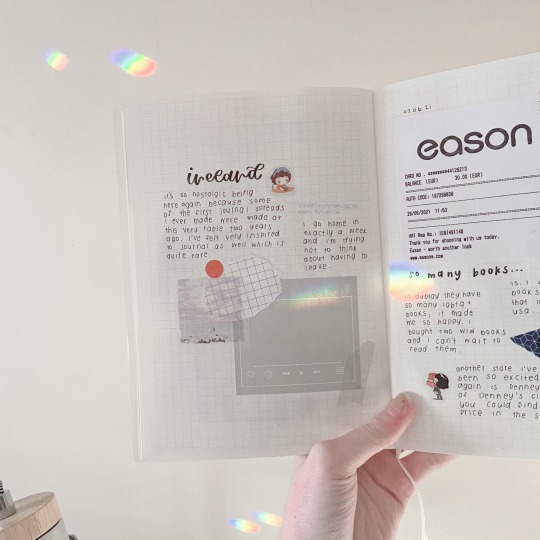 ireland
it's so nostalgic being
here again because some
of the first journal spreads
i ever made were made at
this very table two years
ago. i've felt very inspired
to journal as well which is
quite rare.
i go home in
exactly a week
and i'm trying
not to think
about having to
leave.
07.06.21
eason
CARD NO
BALANCE (EUR) 30.00 (EUR)
AUTH CODE:
26/06/2021 11:53
VAT Reg No.:
Thank you for shopping with us today.
Eason - worth another look
www.easons.com
so many books...
in dublin they have
so many lgbtq+
books, it made
me so happy. i
bought two wlw books
and i can't wait to
read them
is. i
books
that i
usa..
another store i've
been so excited
again is penney
of penney's ci
you could find
price in the s